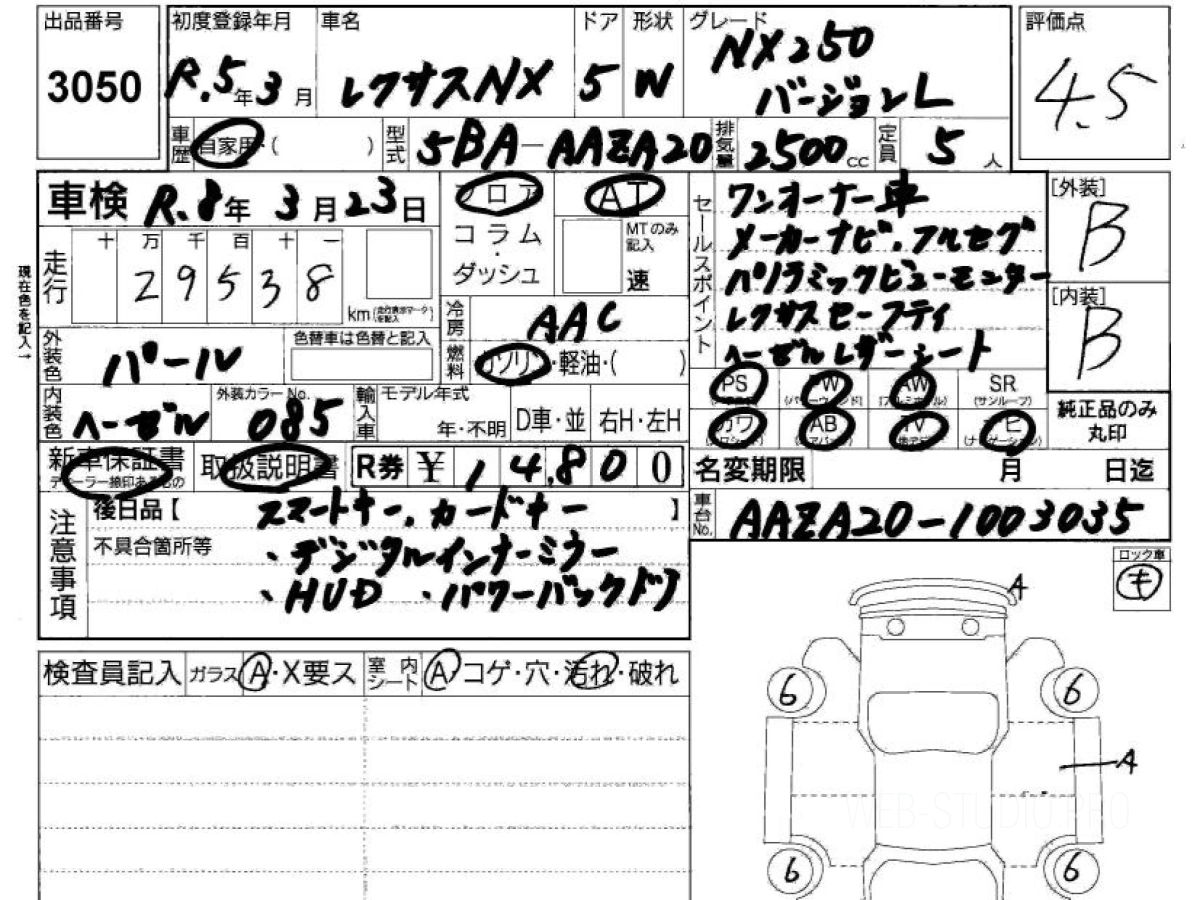 出品番号
3050
初度登録年月
R.5年3月
車名
レクサスNX
ドア
5
形状
W
グレード
NX250
バージョンL
評価点
4.5
車歴
自家用・( )
型式
5BA-AAZA20
排気量
2500cc
定員
5人
車検 R.8年3月23日
フロア
コラム
・
ダッシュ
AT
MTのみ
記入
速
セールスポイント
ワンオーナー車
メーカーナビ・フルセグ
パノラミックビューモニター
レクサスセーフティ
ヘーゼルレザーシート
[外装]
B
[内装]
B
現在色を記入→
走行
十万千百十一
29538
km
冷房
AAC
外装色
パール
色替車は色替と記入
燃料
ガソリン・軽油・( )
内装色
ヘーゼル
外装カラーNo.
085
輸入車
モデル年式
年・不明
D車・並
右H・左H
PS
PW
(パワーウィンド)
AW
(アルミホイル)
SR
(サンルーフ)
カワ
(カワシート)
AB
(エアバック)
TV
ナビ
(ナビゲーション)
純正品のみ
丸印
新車保証書
取扱説明書
R券 ¥ 14,800
名変期限 月 日迄
注意事項
後日品【 スマートキー、カードキー 】
不具合箇所等
・デジタルインナーミラー
・HUD ・パワーバックドア
車台No.
AAZA20-1003035
ロック車
キ
検査員記入
ガラス A・X要ス
室内シート A・コゲ・穴・汚れ・破れ
A
6
6
A
6
6
WEB-STUDIO.PRO